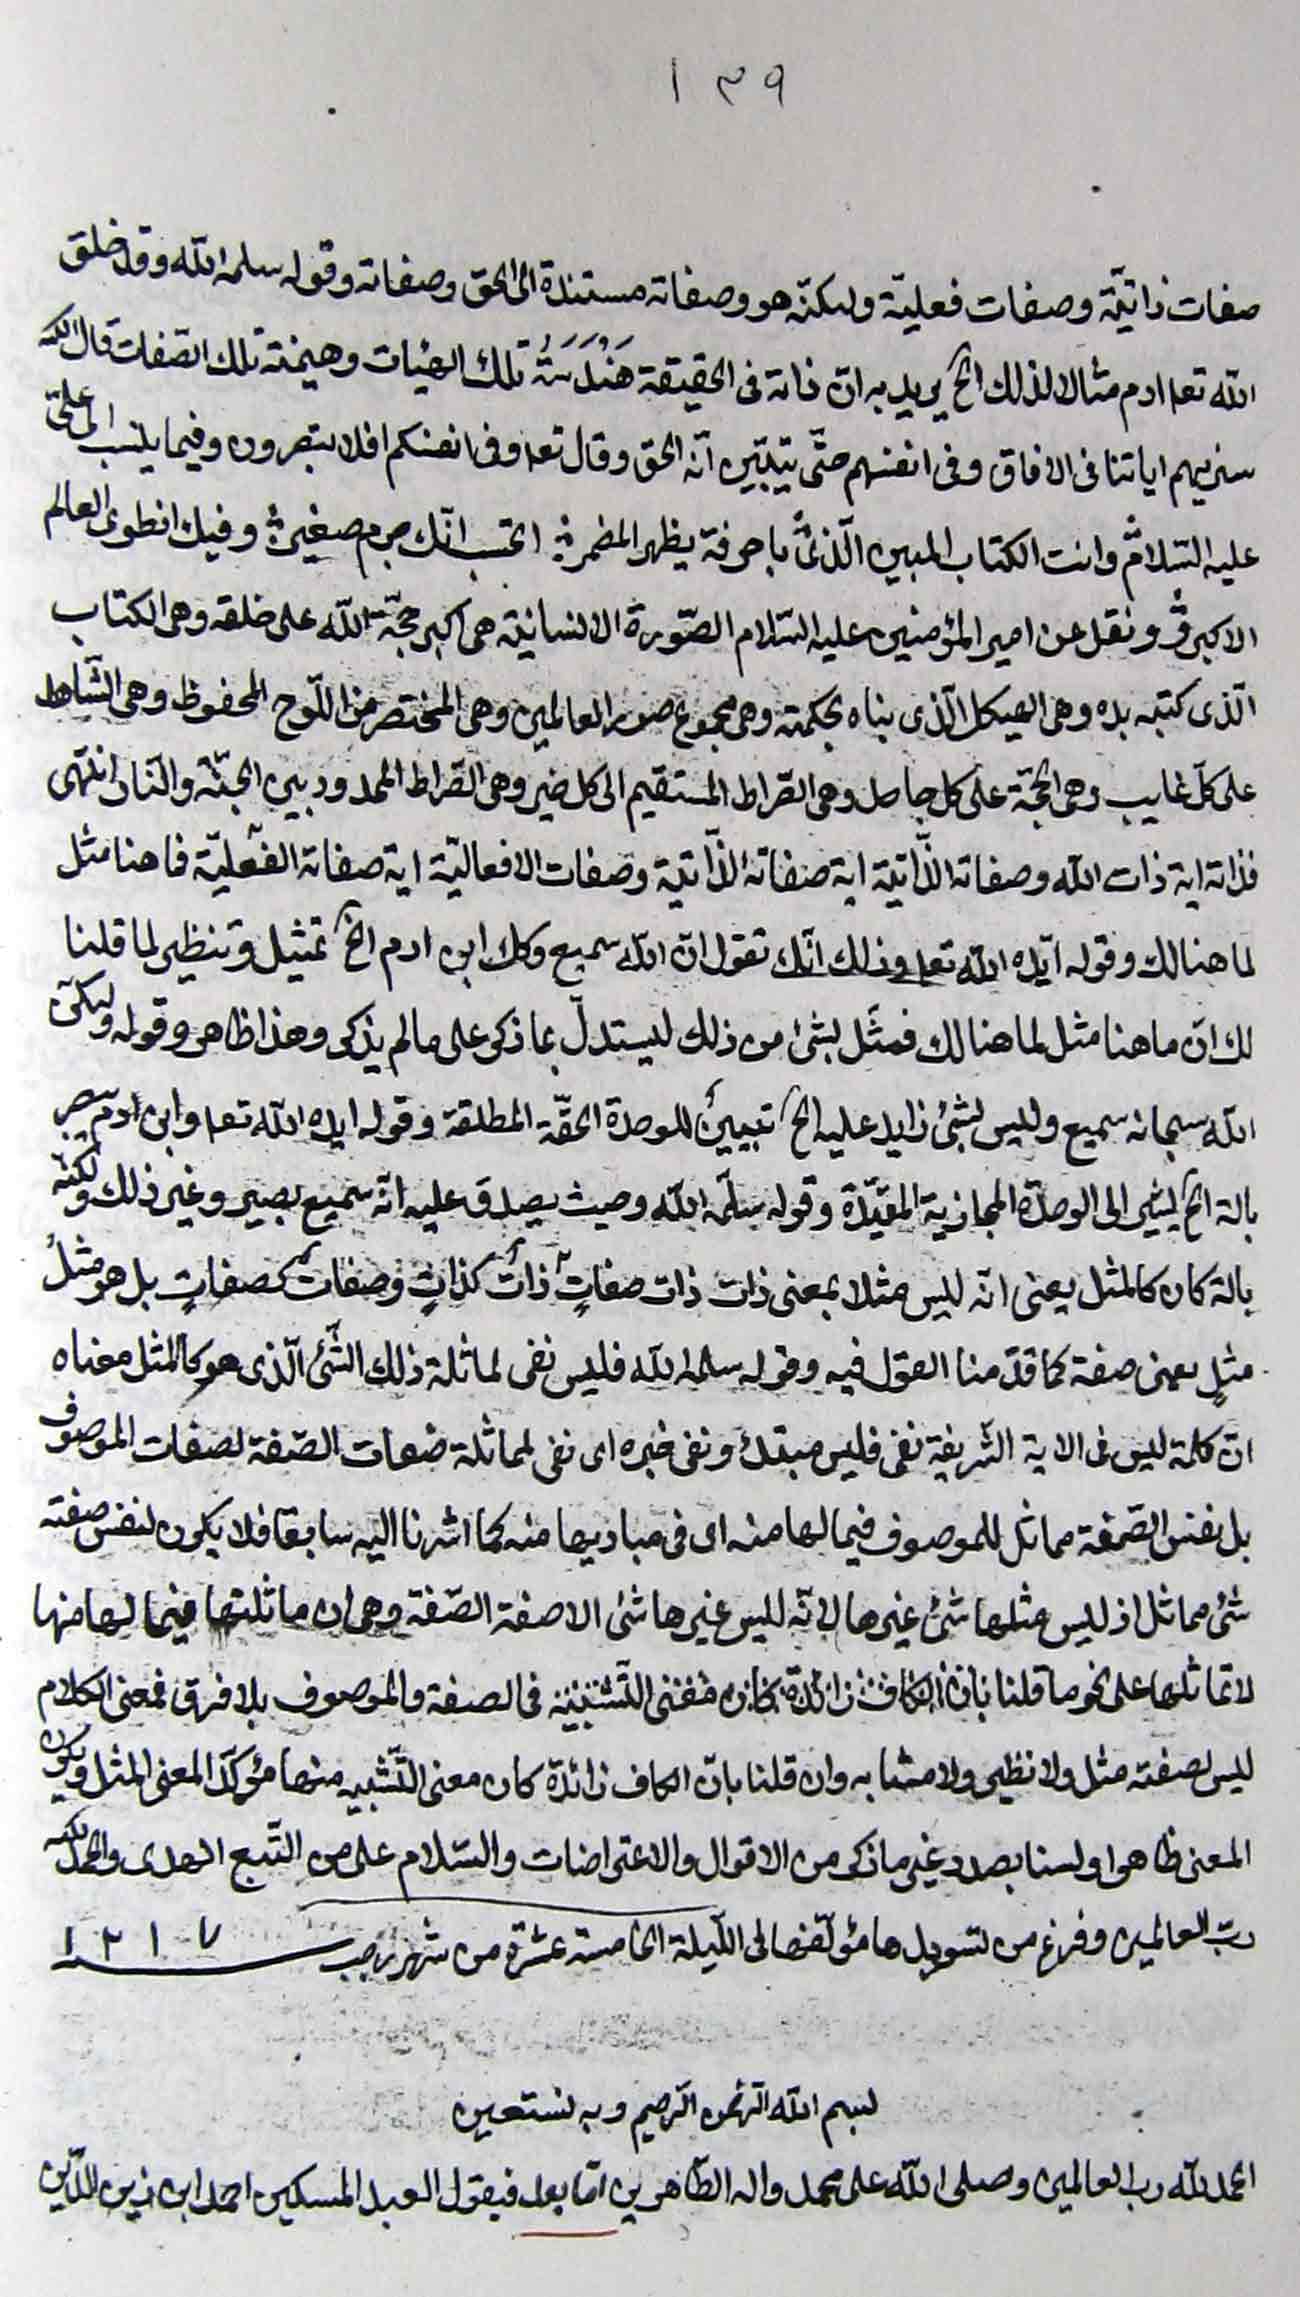 ١٣٩
صفات ذاتيّة وصفات فعليّة ولكنّه هو وصفاته مستندة الى الحق وصفاته وقوله سلمه الله وقد خلق
الله تعا ادم مثالا لذلك الخ يريد به ان ذاته فى الحقيقة هَنْدَسَةُ تلك الهيئات وهيمنة تلك الصفات قال الله
سنريهم اياتنا فى الافاق وفى انفسهم حتّى يتبيّن انّه الحق وقال تعا وفى انفسكم افلا تبصرون وفيما ينسب الى علىّ
عليه السّلام وانت الكتاب المبين الّذى باحرفه يظهر المضمر اتحسب انّك جرم صغير وفيك انطوى العالم
الاكبر ونقل عن امير المؤمنين عليه السّلام الصّورة الانسانيّة هى اكبر حجّة الله على خلقه وهى الكتاب
الّذى كتبه بيده وهى الهيكل الّذى بناه بحكمته وهى مجموع صور العالمين وهى المختصر من اللّوح المحفوظ وهى الشّاهد
على كلّ غايب وهى الحجّة على كل جاحد وهى الصّراط المستقيم الى كل خير وهى الصّراط الممدود بين الجنّة والنّار انتهى
فذاته اية ذات الله وصفاته الذّاتيّة اية صفاته الذّاتيّة وصفات الافعاليّة اية صفاته الفعليّة فما هنا مثل
لما هنالك وقوله ايّده الله تعا وذلك انّك تقول ان الله سميع وكك ابن ادم الخ تمثيل وتنظير لما قلنا
لك ان ما هنا مثل لما هنالك فمثّل بشئ من ذلك ليستدلّ بما ذكر على ما لم يذكر وهذا ظاهر وقوله ولكنّ
الله سبحانه سميع وليس بشئ زايد عليه الخ تبيين للوحدة الحقّة المطلقة وقوله ايده الله تعا وابن ادم سميع
بالة الخ يشير الى الوحدة المجازية المقيّدة وقوله سلّمه الله وحيث يصدق عليه انّه سميع بصير وغير ذلك ولكنّه
بالة كان كالمثل يعنى انّه ليس مثلا بمعنى ذات ذات صفاتٍ ذاتٌ كذاتٍ وصفات كصفاتٍ بل هو مثلُ
مثلٍ بمعنى صفة كما قدّمنا القول فيه وقوله سلمه الله فليس نفى لمماثلة ذلك الشّئ الّذى هو كالمثل معناه
انّ كلمة ليس فى الاية الشّريفة نفى فليس مبتدا ونفى خبره اى نفى لمماثلة صفات الصّفة لصفات الموصوف
بل نفس الصّفة مماثل للموصوف فيما لها منه اى فى مباديها منه كما اشرنا اليه سابقا فلا يكون لنفس صفته
شئ مماثل اذ ليس مثلها شئ غيرها لانّه ليس غيرها شئ الا صفة الصّفة وهى ان ماثلتها فيما لها منها
لا تماثلها على نحو ما قلنا بانّ الكاف زائدة كان فنفى التّشبيه فى الصفة والموصوف بلا فرق فمعنى الكلام
ليس لصفته مثل ولا نظير ولا مشابه وان قلنا بانّ الكاف زائدة كان معنى التّشبيه منها مؤكّدا لمعنى المثل ويكون
المعنى ظاهرا ولسنا بصدد غير ما ذكر من الاقوال والاعتراضات والسّلام على من اتّبع الهدى والحمد لله
ربّ العالمين وفرغ من تسويدها مؤلّفها فى اللّيلة الخامسة عشرة من شهر رجب ١٢١٧
بسم الله الرّحمن الرّحيم وبه نستعين
الحمد لله رب العالمين وصلى الله على محمد واله الطّاهرين امّا بعد فيقول العبد المسكين احمد ابن زين الدّين